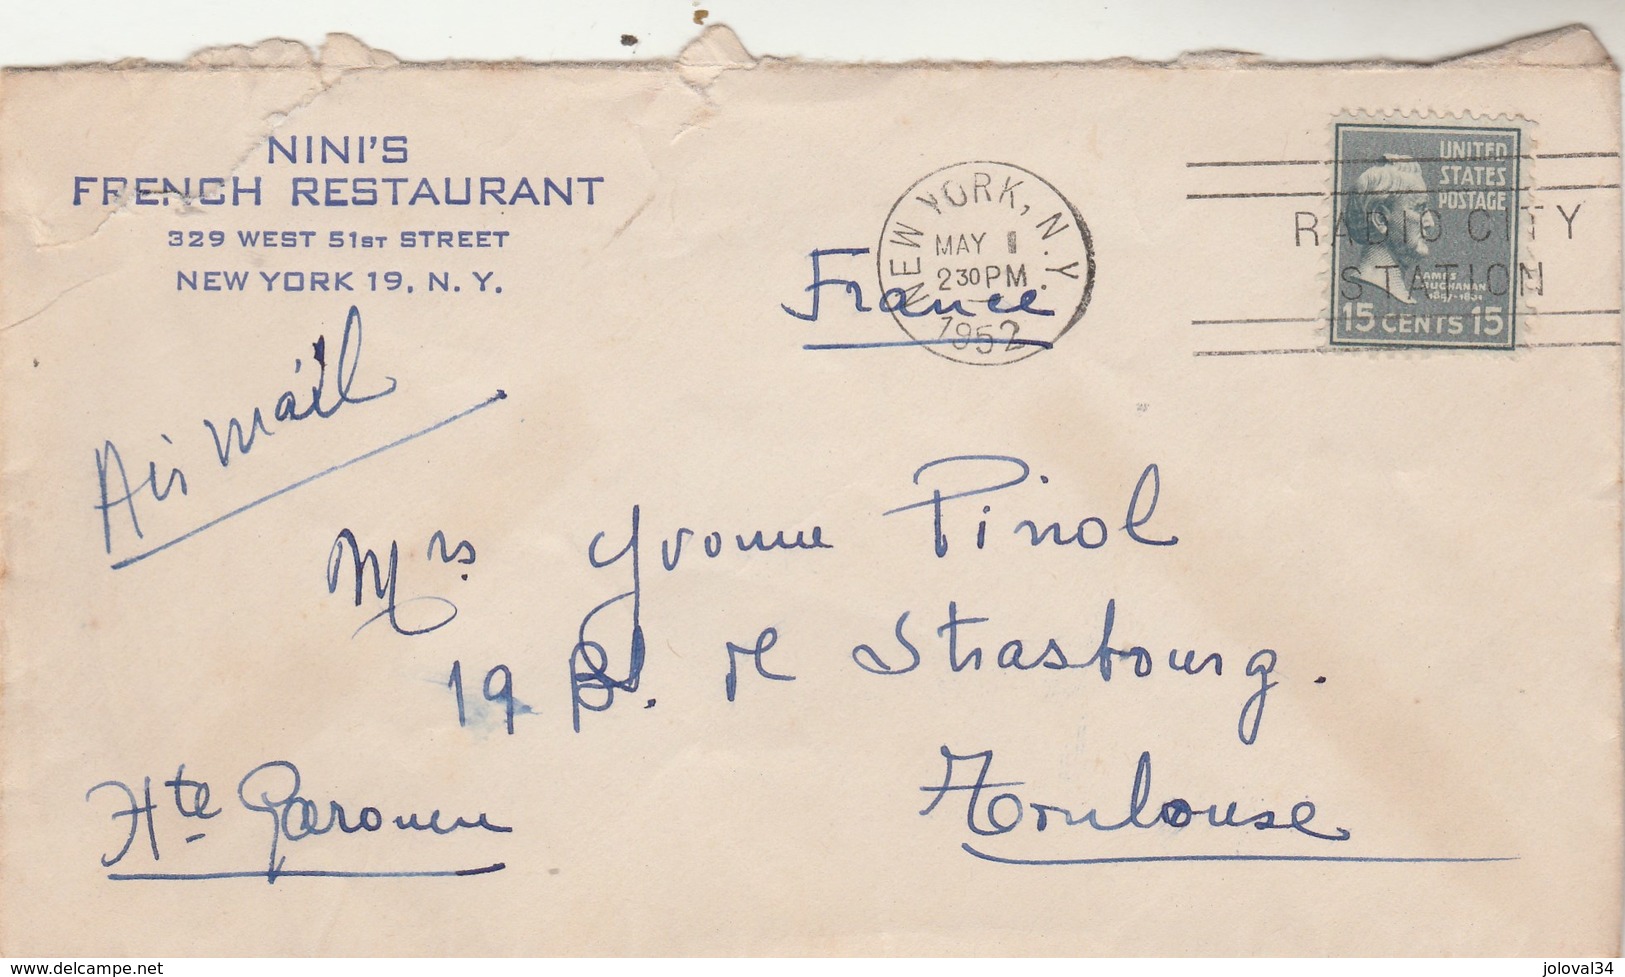 NINI'S
FRENCH RESTAURANT
329 WEST 51ST STREET
NEW YORK 19, N. Y.
NEW YORK, N.Y.
MAY 1
2 30 PM
1952
RADIO CITY
STATION
UNITED
STATES
POSTAGE
JAMES
BUCHANAN
15 CENTS 15
France
Air mail
Mrs Yvonne Pinol
19 Bl. de Strasbourg.
Toulouse
Hte Garonne
www.delcampe.net
joloval34